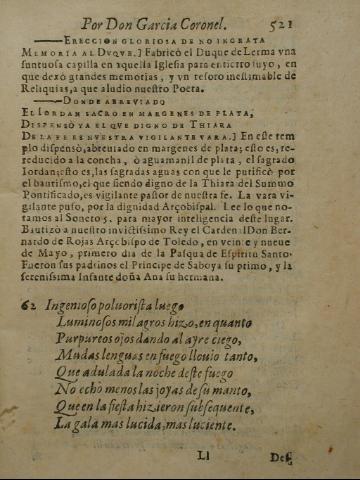 Por Don Garcia Coronel. 521
——ERECCION GLORIOSA DE NO INGRATA
MEMORIA AL DVQVE.] Fabricò el Duque de Lerma vna
suntuosa capilla en aquella Iglesia para entierro suyo, en
que dexò grandes memorias, y vn tesoro inestimable de
Reliquias, a que aludio nuestro Poeta.
——DONDE ABREVIADO
EL IORDAN SACRO EN MARGENES DE PLATA,
DISPENSÒ YA EL QVE DIGNO DE THIARA
DE LA FE ES NVESTRA VIGILANTE VARA.] En este tem
plo dispensò, abreuiado en margenes de plata; esto es, re-
reducido a la concha, ò aguamanil de plata, el sagrado
Iordan; esto es, las sagradas aguas con que le purificò por
el bautismo, el que siendo digno de la Thiara del Summo
Pontificado, es vigilante pastor de nuestra fe. La vara vi-
gilante puso, por la dignidad Arçobispal. Lee lo que no-
tamos al Soneto 5. para mayor inteligencia deste lugar.
Bautizò a nuestro invictissimo Rey el Cardenal Don Ber-
nardo de Rojas Arçobispo de Toledo, en veinte y nueue
de Mayo, primero dia de la Pasqua de Espiritu Santo.
Fueron sus padrinos el Principe de Saboya su primo, y la
serenissima Infante doña Ana su hermana.
62 Ingenioso poluorista luego
Luminosos milagros hizo, en quanto
Purpureos ojos dando al ayre ciego,
Mudas lenguas en fuego llouio tanto,
Que adulada la noche deste fuego
No echò menos las joyas de su manto,
Que en la fiesta hizieron subsequente,
La gala mas lucida, mas luciente.
Ll Def-